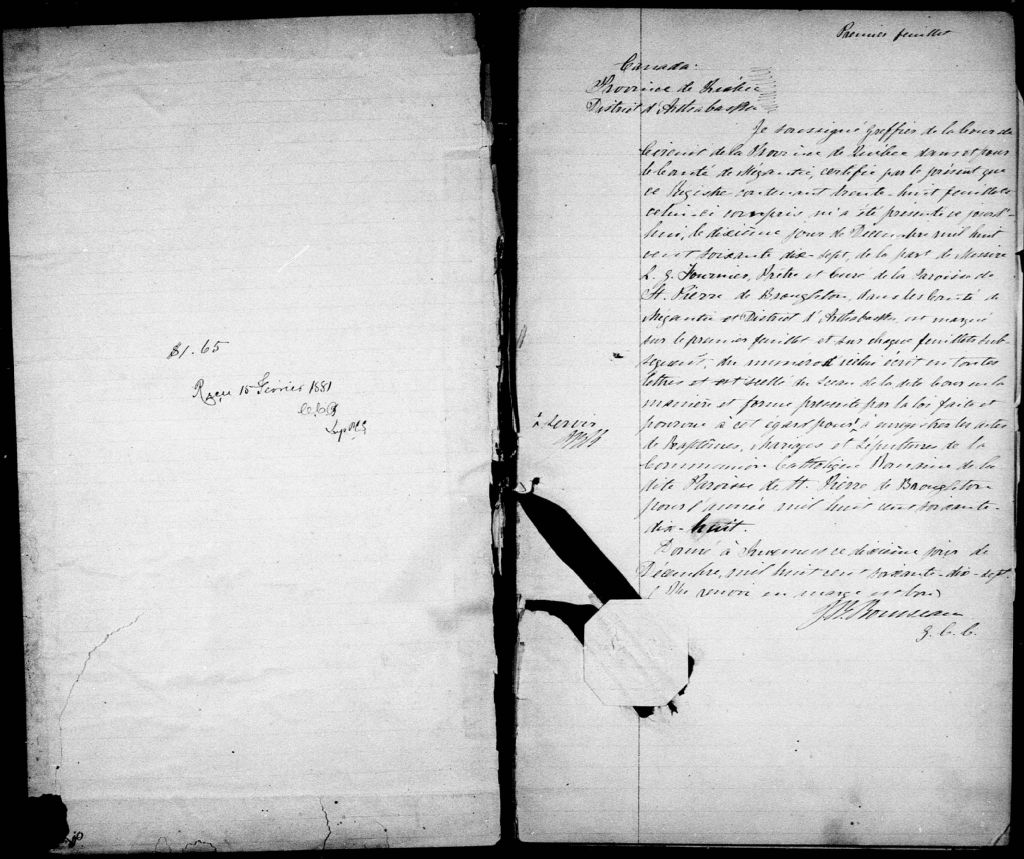 $1.65
Reçu 15 Février 1881
Premier feuillet
Canada:
Province de Québec
District d'Arthabaska
Je soussigné Greffier de la Cour de
Circuit de la Province de Québec dans et pour
le Comté de Mégantic, certifie par le présent que
ce Régistre contenant trente-huit feuillets
celui-ci compris m'a été présenté ce jourd'-
hui, le dixième jour de Décembre mil huit
cent soixante dix-sept, de la part de Messire
Fournier, Prêtre et Curé de la Paroisse de
St. Pierre de Broughton, dans les Comté de
Mégantic et District d'Arthabaska, est marqué
sur le premier feuillet et sur chaque feuillet sub-
séquent, du numero écrit en toutes
lettres et est scellé du Sceau de la dite Cour en la
manière et forme par la loi faite et
pourvue à cet égard pour à enregistrer les actes
à servir
de Baptêmes, Mariages et Sépultures de la
Communion Catholique Romaine de la
dite Paroisse de St. Pierre de Broughton
pour l'année mil huit cent soixante-
dix-huit.
Donné à Inverness ce dixième jour de
Décembre, mil huit cent soixante-dix-sept.
renvoi en marge est bon)
Rousseau
G. C. C.